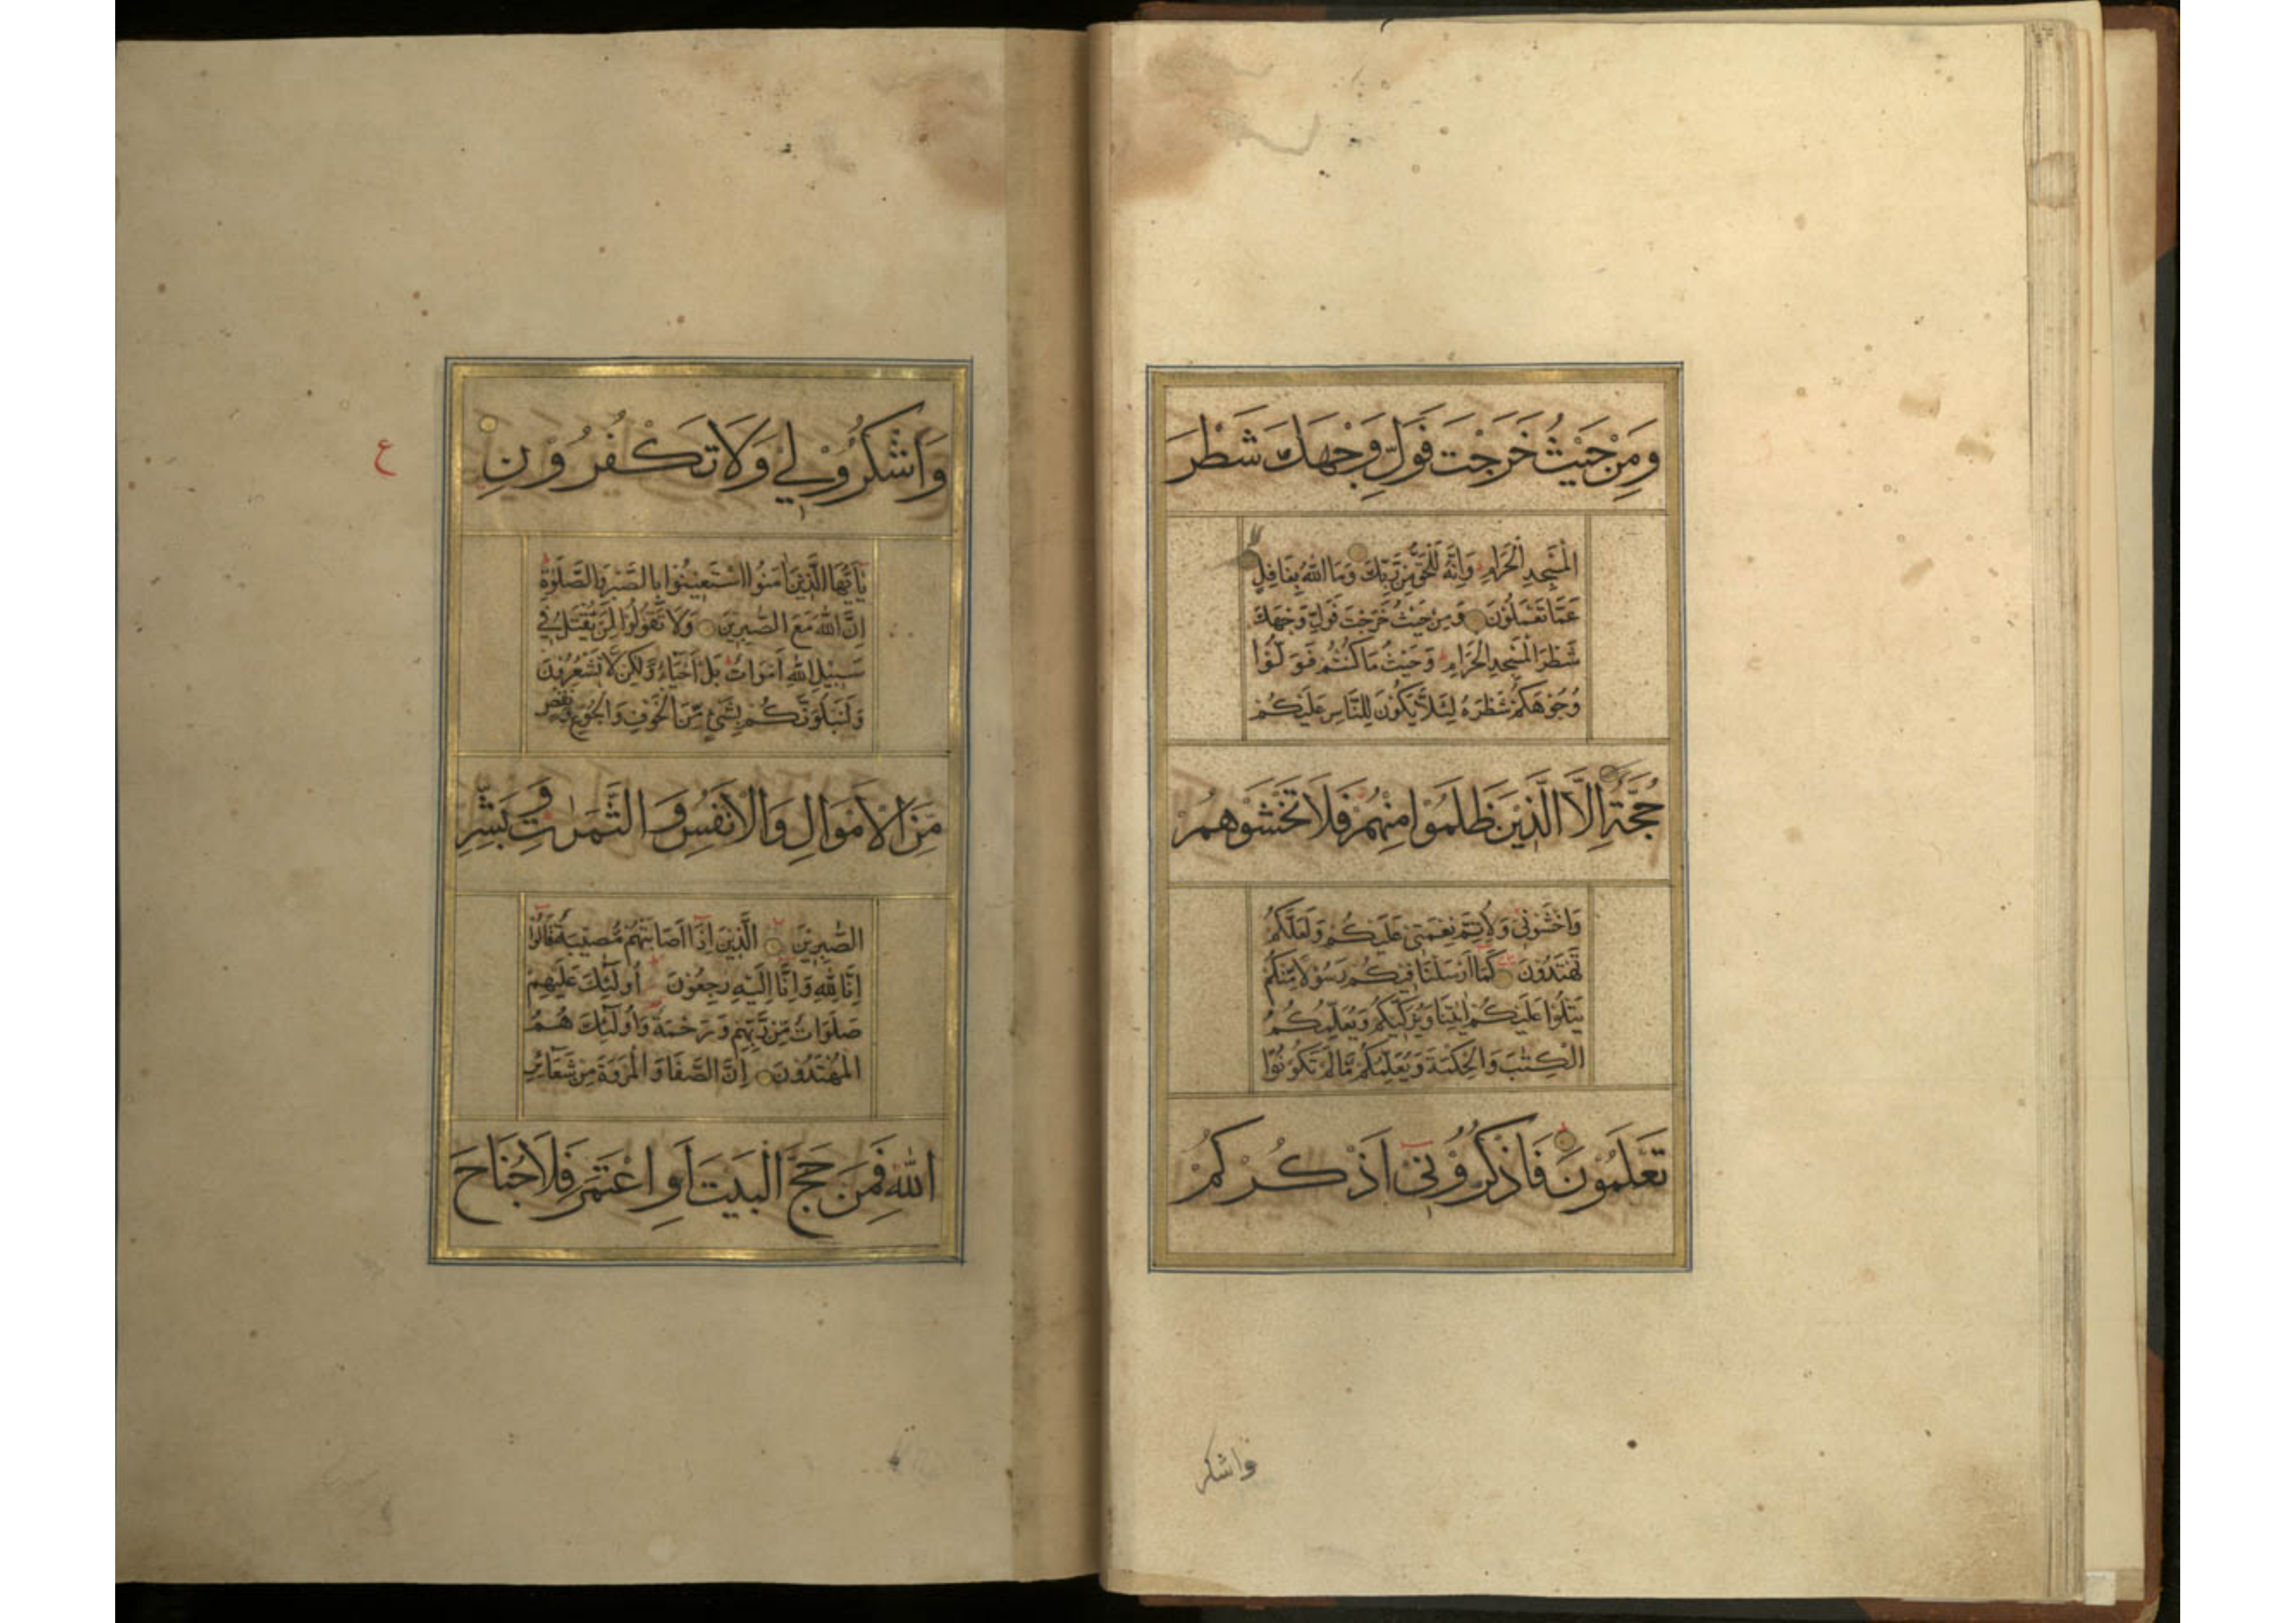 وَمِنْ حَيْثُ خَرَجْتَ فَوَلِّ وَجْهَكَ شَطْرَ
الْمَسْجِدِ الْحَرَامِ وَاِنَّهُ لَلْحَقُّ مِنْ رَبِّكَ وَمَا اللّٰهُ بِغَافِلٍ
عَمَّا تَعْمَلُوْنَ وَمِنْ حَيْثُ خَرَجْتَ فَوَلِّ وَجْهَكَ
شَطْرَ الْمَسْجِدِ الْحَرَامِ وَحَيْثُ مَا كُنْتُمْ فَوَلُّوْا
وُجُوْهَكُمْ شَطْرَهُ لِئَلَّا يَكُوْنَ لِلنَّاسِ عَلَيْكُمْ
حُجَّةٌ اِلَّا الَّذِيْنَ ظَلَمُوْا مِنْهُمْ فَلَا تَخْشَوْهُمْ
وَاخْشَوْنِيْ وَلِاُتِمَّ نِعْمَتِيْ عَلَيْكُمْ وَلَعَلَّكُمْ
تَهْتَدُوْنَ كَمَا اَرْسَلْنَا فِيْكُمْ رَسُوْلًا مِنْكُمْ
يَتْلُوْا عَلَيْكُمْ اٰيٰتِنَا وَيُزَكِّيْكُمْ وَيُعَلِّمُكُمُ
الْكِتٰبَ وَالْحِكْمَةَ وَيُعَلِّمُكُمْ مَّا لَمْ تَكُوْنُوْا
تَعْلَمُوْنَ فَاذْكُرُوْنِيْ اَذْكُرْكُمْ
واشكر
وَاشْكُرُوْلِيْ وَلَا تَكْفُرُوْنِ
ع
يٰاَيُّهَا الَّذِيْنَ اٰمَنُوا اسْتَعِيْنُوْا بِالصَّبْرِ وَالصَّلٰوةِ
اِنَّ اللّٰهَ مَعَ الصّٰبِرِيْنَ وَلَا تَقُوْلُوْا لِمَنْ يُقْتَلُ فِيْ
سَبِيْلِ اللّٰهِ اَمْوَاتٌ بَلْ اَحْيَاءٌ وَّلٰكِنْ لَّا تَشْعُرُوْنَ
وَلَنَبْلُوَنَّكُمْ بِشَيْءٍ مِّنَ الْخَوْفِ وَالْجُوْعِ وَنَقْصٍ
مِّنَ الْاَمْوَالِ وَالْاَنْفُسِ وَالثَّمَرٰتِ وَبَشِّرِ
الصّٰبِرِيْنَ الَّذِيْنَ اِذَا اَصَابَتْهُمْ مُّصِيْبَةٌ قَالُوْا
اِنَّا لِلّٰهِ وَاِنَّا اِلَيْهِ رٰجِعُوْنَ اُولٰئِكَ عَلَيْهِمْ
صَلَوَاتٌ مِّنْ رَّبِّهِمْ وَرَحْمَةٌ وَاُولٰئِكَ هُمُ
الْمُهْتَدُوْنَ اِنَّ الصَّفَا وَالْمَرْوَةَ مِنْ شَعَائِرِ
اللّٰهِ فَمَنْ حَجَّ الْبَيْتَ اَوِ اعْتَمَرَ فَلَا جُنَاحَ